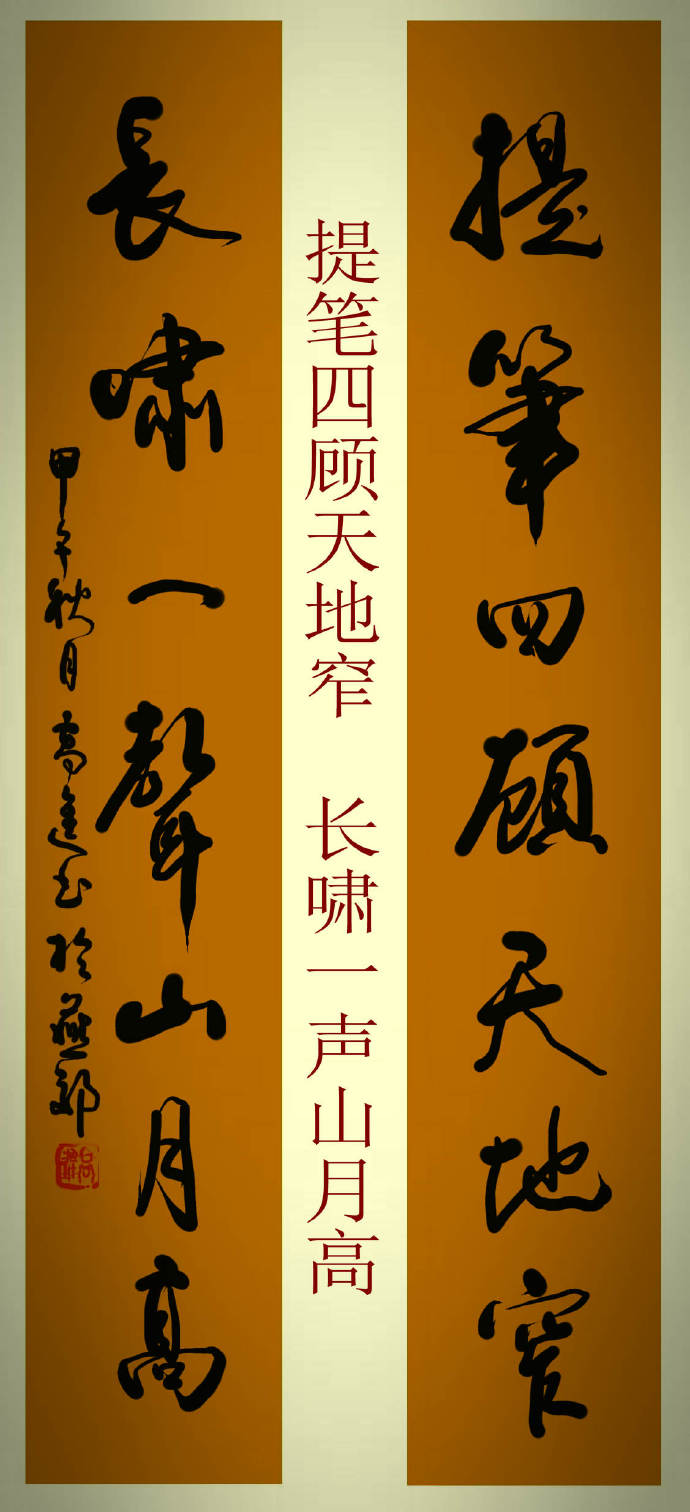 提筆四顧天地窄
提笔四顾天地窄 长啸一声山月高
長嘯一聲山月高
甲午秋月高進书於燕郊